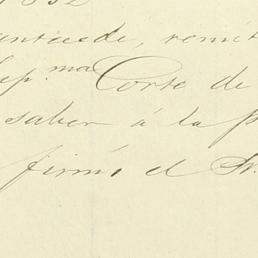 antecede, remit
ep.ma Corte de
saber á la p
firmó el Sr.